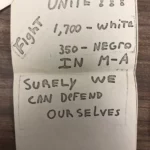 UNITE !!!
Fight
1,700 - White
350 - NEGRO
IN M-A
SURELY WE
CAN DEFEND
OURSELVES